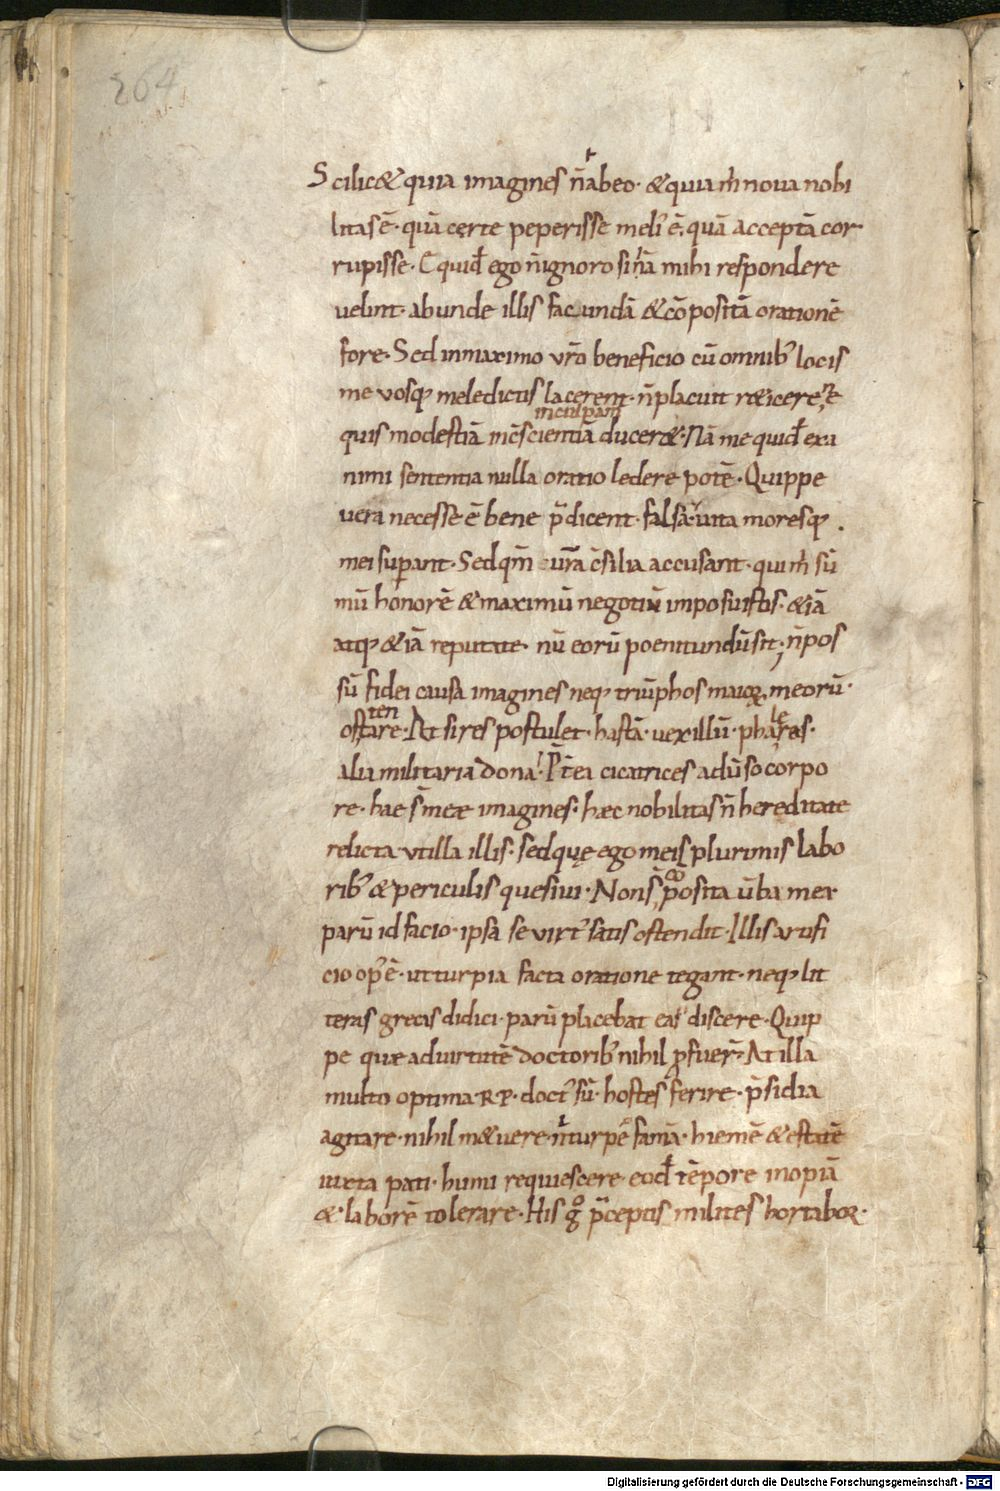 264
Scilic& quia imagines n̄ abeo· & quia m̄ nova nobi
litas ē· quā certe peperisse meli' ē, quā acceptā cor
rupisse· Equid̄ ego n̄ ignoro si nā mihi respondere
velint· abunde illis facundā & cō positā orationē
fore· Sed in maximo vr̄o beneficio cū omnib' locis
me vosq; meledictis lacerent· n̄ placuit r&icere, ne
inculpam
quis modestiā incscientiā ducer&· Nā me quid̄ exa
nimi sententia nulla oratio ledere potē· Quippe
vera necesse ē bene p̄dicent· falsā vita moresq;
mei supant· Sed qm̄ vr̄a c̄silia accusant· qui m̄ sū
mū honorē & maximū negotiū imposuistis· & iā
atq; & iā reputate· nū eorū poenitundū sit; n̄ pos
sū fidei causa imagines neq; triūphos maioꝝ meorū·
ten
ostare· At si res postulet· hastā· vexillū· phaleras·
alia militaria dona· P̄t̄ea cicatrices adūso corpo
re· hae s̄ meæ imagines· hæc nobilitas n̄ hereditate
relicta· ut illa illis· sed quę ego meis plurimis labo
rib' & periculis quesivi· Non s̄ p̄posita ūba mea
parū id facio· ipsa se virt' satis ostendit· Illis artifi
cio op' ē· ut turpia facta oratione tegant· neq; lit
teras grecas didici· parū placebat eas discere· Quip
pe quæ ad virtutē doctorib' nihil pfuer̄· At illa
multo optima R·P· doct' sū· hostes ferire· p̄sidia
agitare· nihil m&uere· n̄ turpē famā· hiemē & estatē
iuxta pati· humi requiescere· eod̄ tēpore inopiā
& laborē tolerare· His g° p̄ceptis milites hortaboꝛ·
Digitalisierung gefördert durch die Deutsche Forschungsgemeinschaft - DFG